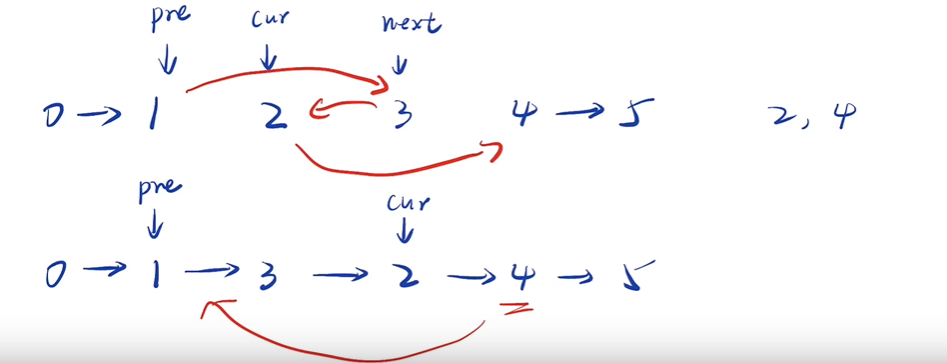 pre cur next
0 → 1 2 3 4 → 5 2, 4
pre cur
0 → 1 → 3 → 2 → 4 → 5